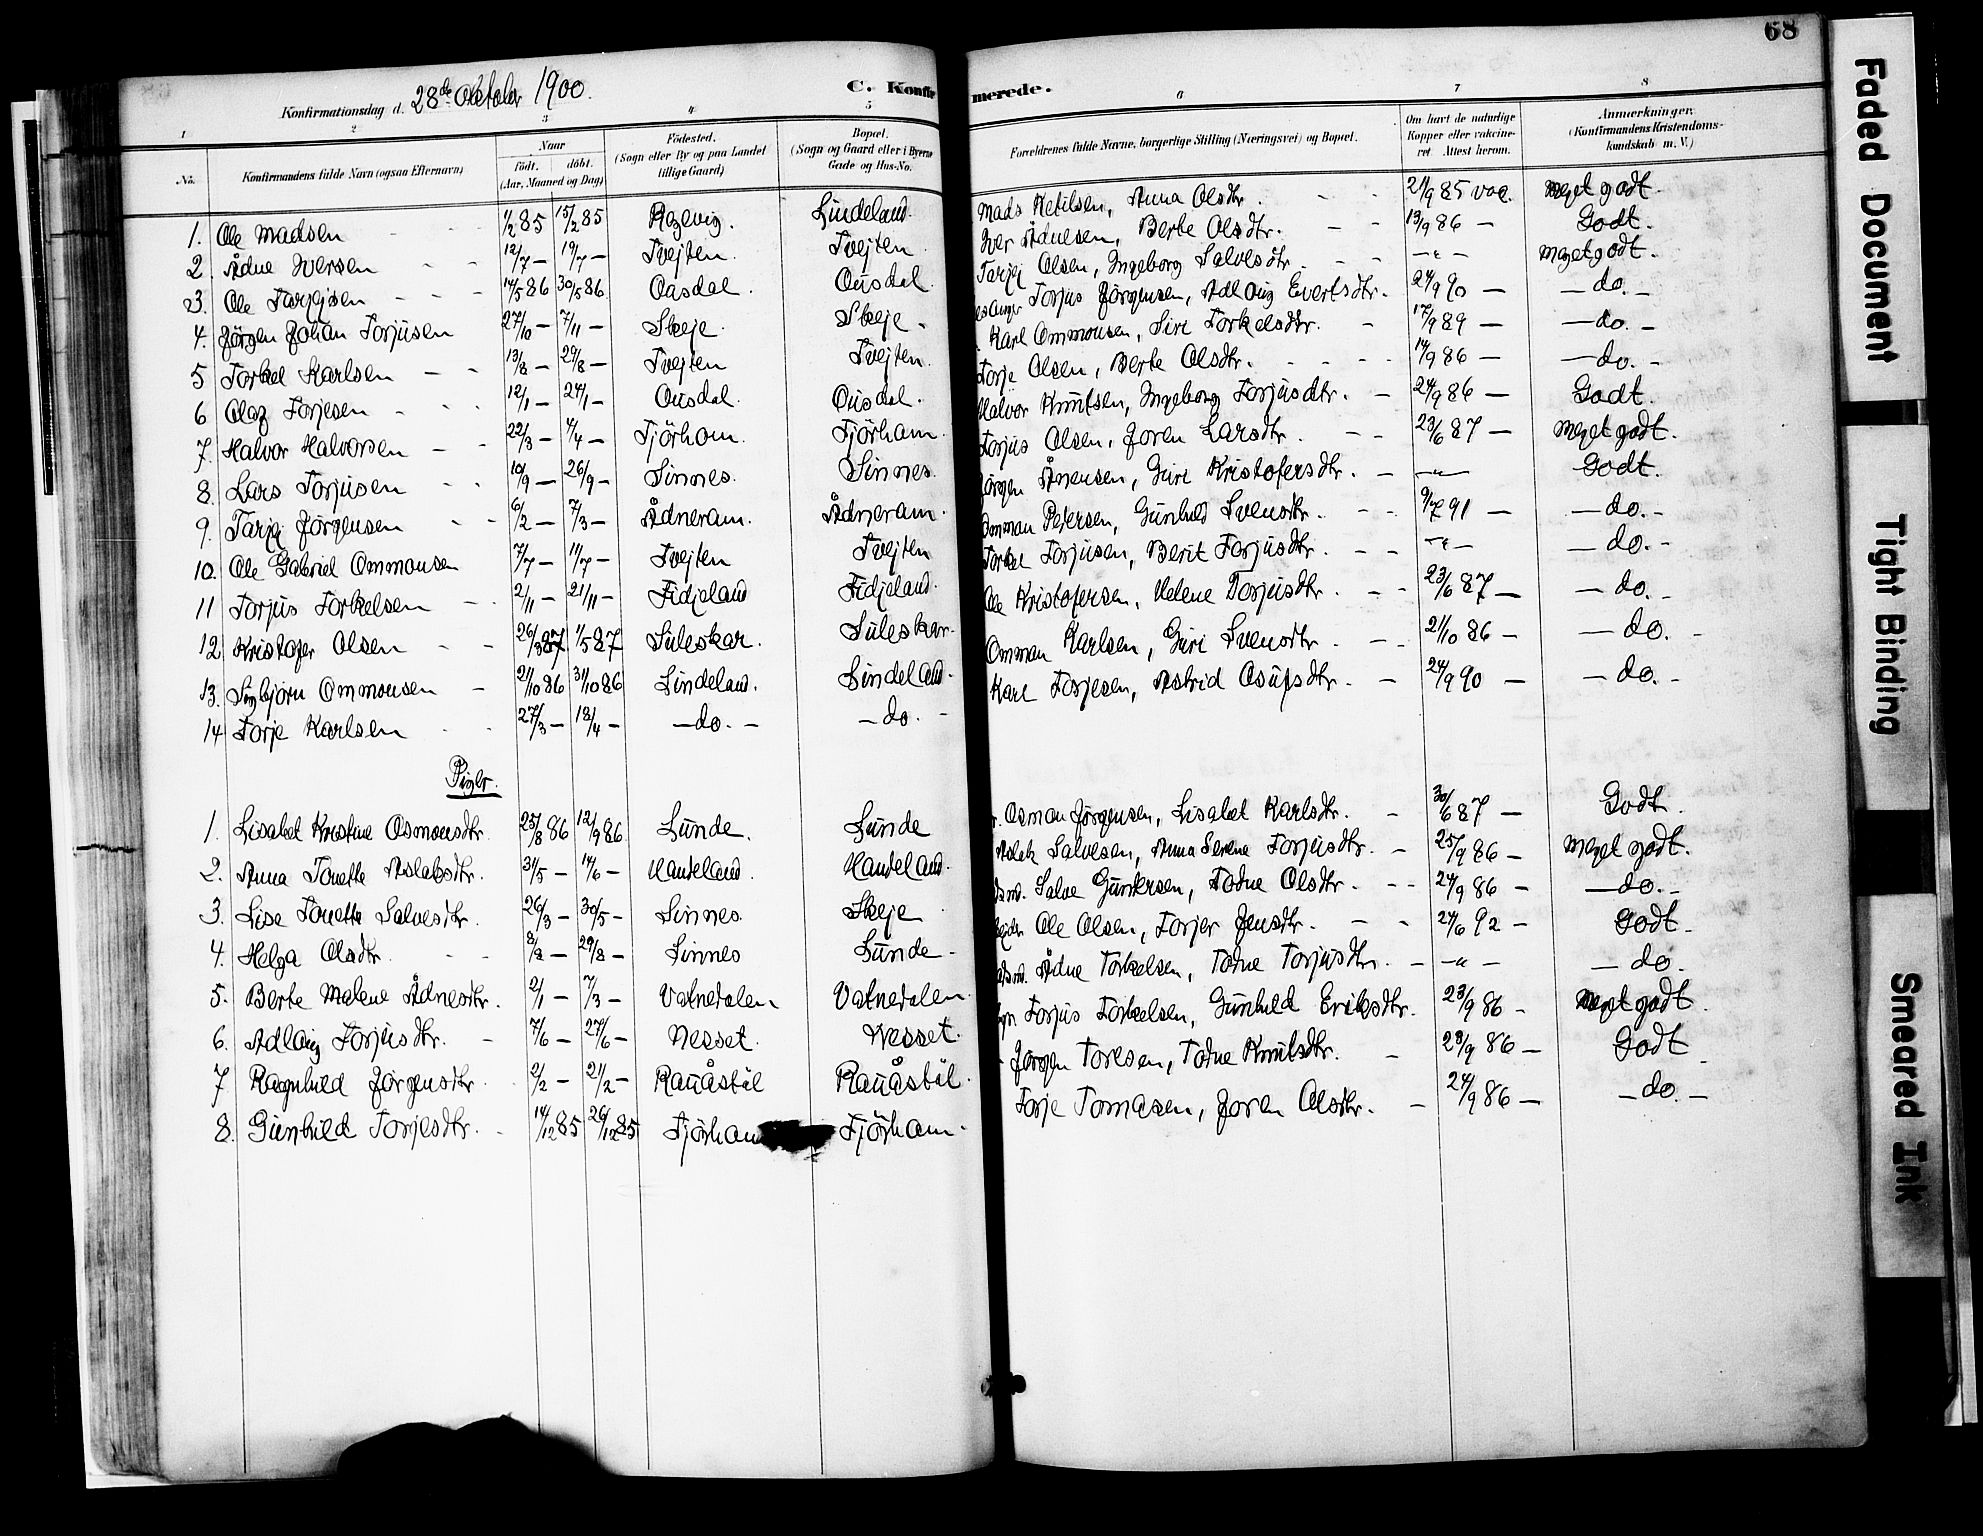 68
Konfirmationsdag d. 28de Oktober 1900.
C. Konfirmerede.
1 2 3 4 5 6 7 8
No. Konfirmandens fulde Navn (ogsaa Efternavn) Naar født. døbt. (Aar, Maaned og Dag) Fødested. (Sogn eller By og paa Landet tillige Gaard) Bopæl. (Sogn og Gaard eller i Byerne Gade og Hus-No. Forældrenes fulde Navne, borgerlige Stilling (Næringsvei) og Bopæl. Om havt de naturlige Kopper eller vakcineret. Attest herom. Anmærkninger. (Konfirmandens Kristendomskundskab m. V.)
1. Ole Madsen 1/2 85 15/2 85 Røgevig. Lindeland. Mads Ketilsen, Anna Olsdtr. 21/9 85 vac. Meget godt.
2 Ådne Iversen 12/7 — 19/7 — Tvejten. Tvejten. Iver Ådnesen, Berte Olsdtr. 13/9 86 — Godt.
3. Ole Tarjejsen 14/5 86 30/5 86 Ousdal. Ousdal. Tarjej Olsen, Ingeborg Salvesdtr. —"— Meget godt.
4. Jørgen Johan Torjusen 27/10 — 7/11 — Skeje. Skeje. Torjus Jørgensen, Adlaug Evertsdtr. 24/9 90 — — do. —
5 Torkel Karlsen 13/8 — 29/8 — Tvejten Tvejten. Karl Ommonsen, Siri Torkelsdtr. 17/9 89 — — do. —
6 Olaf Torjesen 12/1 — 24/1 — Ousdal. Ousdal. Torje Olsen, Berte Olsdtr. 14/9 86 — — do. —
7. Halvor Halvorsen 22/3 — 4/4 — Tjørhom. Tjørhom. Halvor Knutsen, Ingeborg Torjusdtr. 24/9 86 — Godt.
8. Lars Torjusen 10/9 — 26/9 — Sinnes. Sinnes. Torjus Olsen, Joren Larsdtr. 23/6 87 — Meget godt.
9. Tarjej Jørgensen 6/2 — 7/3 — Ådneram. Ådneram. Jørgen Ånensen, Guri Kristofersdtr. —"— Godt.
10. Ole Gabriel Ommonsen 7/7 — 11/7 — Tvejten Tvejten Omman Pedersen, Gunhild Svensdtr. 9/7 91 — — do. —
11 Torjus Torkelsen 2/11 — 21/11 — Fidjeland Fidjeland. Torkel Torjusen, Berit Torjusdtr. —"— — do. —
12 Kristofer Olsen 26/3 87 1/5 87 Suleskar. Suleskar. Ole Kristofersen, Helene Torjusdtr. 23/6 87 — — do. —
13. Ommonsen 21/10 86 31/10 86 Lindeland. Lindeland. Omman Karlsen, Guri Svensdtr. 21/10 86 — — do. —
14 Torje Karlsen 27/3 — 18/4 — — do. — — do. — Karl Torjesen, Astrid Osufsdtr. 24/9 90 — — do. —
Piger.
1. Lisabet Kristine Osmonsdtr. 25/8 86 12/9 86 Lunde. Lunde Osman Jørgensen, Lisabet Karlsdtr. 30/6 87 — Godt.
2. Anna Tonette Aslaksdtr. 31/5 — 14/6 — Haudeland. Haudeland. Aslak Salvesen, Anna Serene Torjusdtr. 25/9 86 — Meget godt.
3. Lise Tonette Salvesdtr. 26/3 — 30/5 — Sinnes Skeje Salve Gundersen, Todne Olsdtr. 24/9 86 — — do. —
4. Helga Olsdtr. 8/8 — 29/8 — Sinnes Lunde — Ole Olsen, Torjer Jensdtr. 24/6 92 — Godt.
5. Berte Malene Ådnesdtr. 2/1 — 7/3 — Vatnedalen Vatnedalen. Ådne Torkelsen, Todne Torjusdtr. —"— — do.
6. Adlaug Torjusdtr. 7/6 — 27/6 — Nesset. Nesset. Torjus Torkelsen, Gunhild Eriksdtr. 23/9 86 — Meget godt.
7 Ragnhild Jørgensdtr. 2/2 — 21/2 — Rauåstøl Rauåstøl. Jørgen Toresen, Todne Knutsdtr. 23/9 86 — Godt
8. Gunhild Torjesdtr. 14/12 85 26/12 85 Tjørhom Tjørhom. Torje Tomasen, Joren Olsdtr. 24/9 86 — — do. —
Faded Document
Tight Binding
Smeared Ink